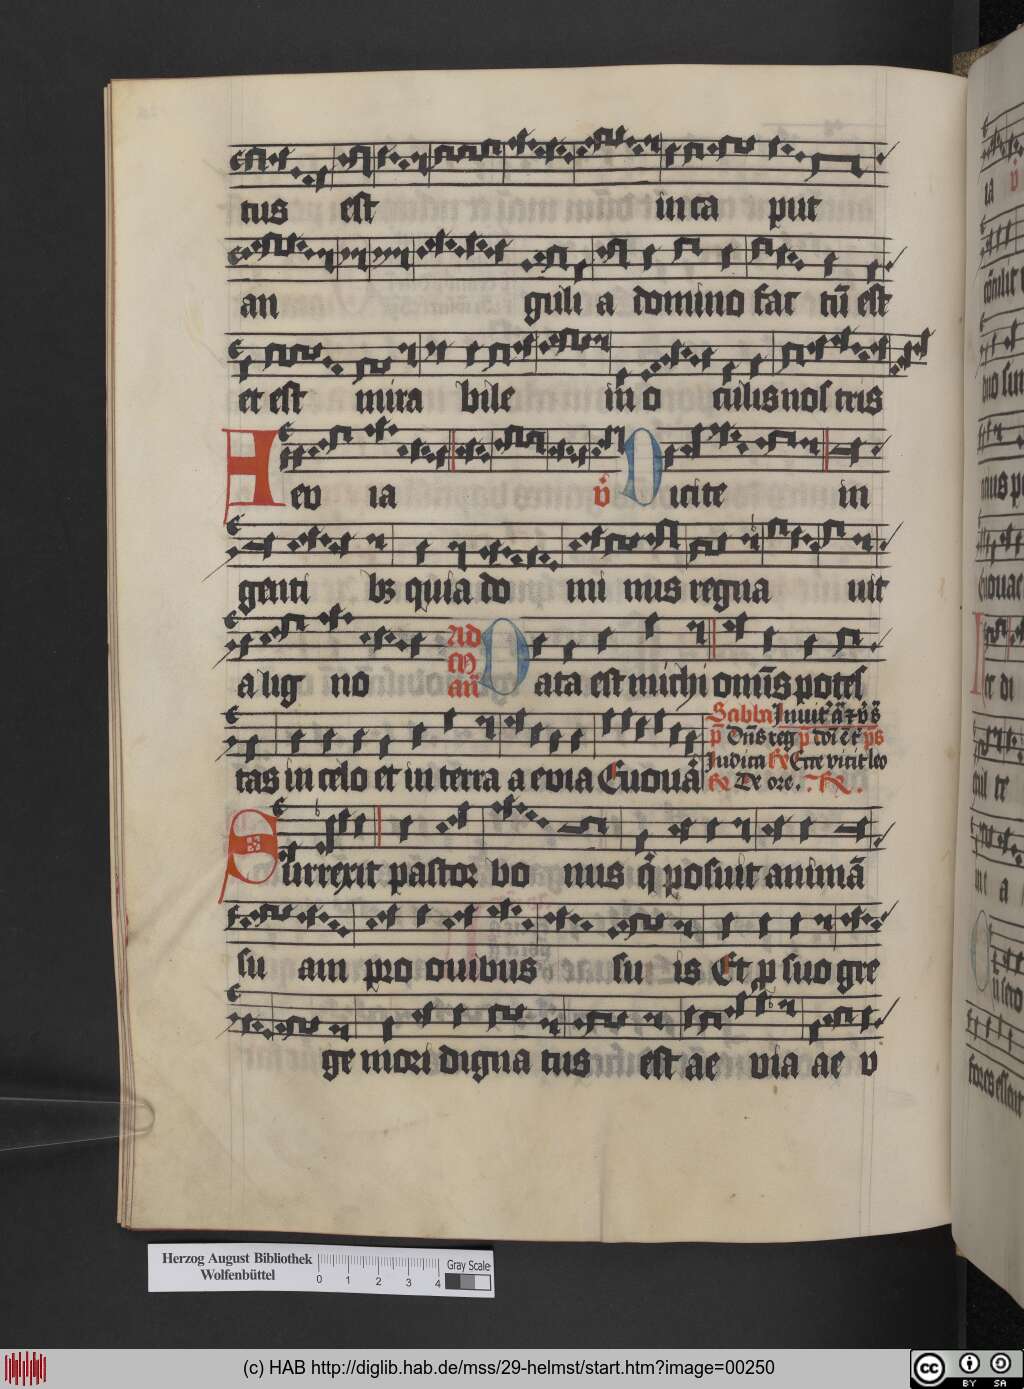 tus est in ca put
an guli a domino fac tū est
et est mira bile in o culis nos tris
Aev ia v̇ Dicite in
genti bꝫ quia do mi nus regna uit
a lig no Ad cā añ Data est michi omīs potes
tas in celo et in terra a evia Euouā
Sabbā Inuit
Judica Ecce vicit leo
De ore.
Surrexit pastor bo nus q̇ posuit animā
su am pro ouibus su is Et p suo gre
ge mori digna tus est ae via ae v
Herzog August Bibliothek
Wolfenbüttel
0 1 2 3 4
Gray Scale
(c) HAB http://diglib.hab.de/mss/29-helmst/start.htm?image=00250
cc BY SA